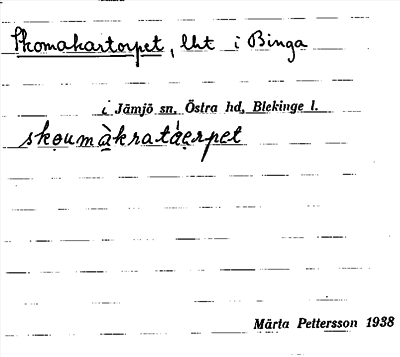 Skomakartorpet, lht i Binga
i Jämjö sn. Östra hd, Blekinge l.
skoumàkratáerpet
Märta Pettersson 1938